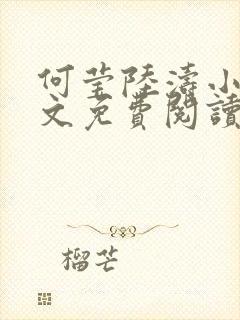 何莹陸濤小
文免費閱讀
榴芒